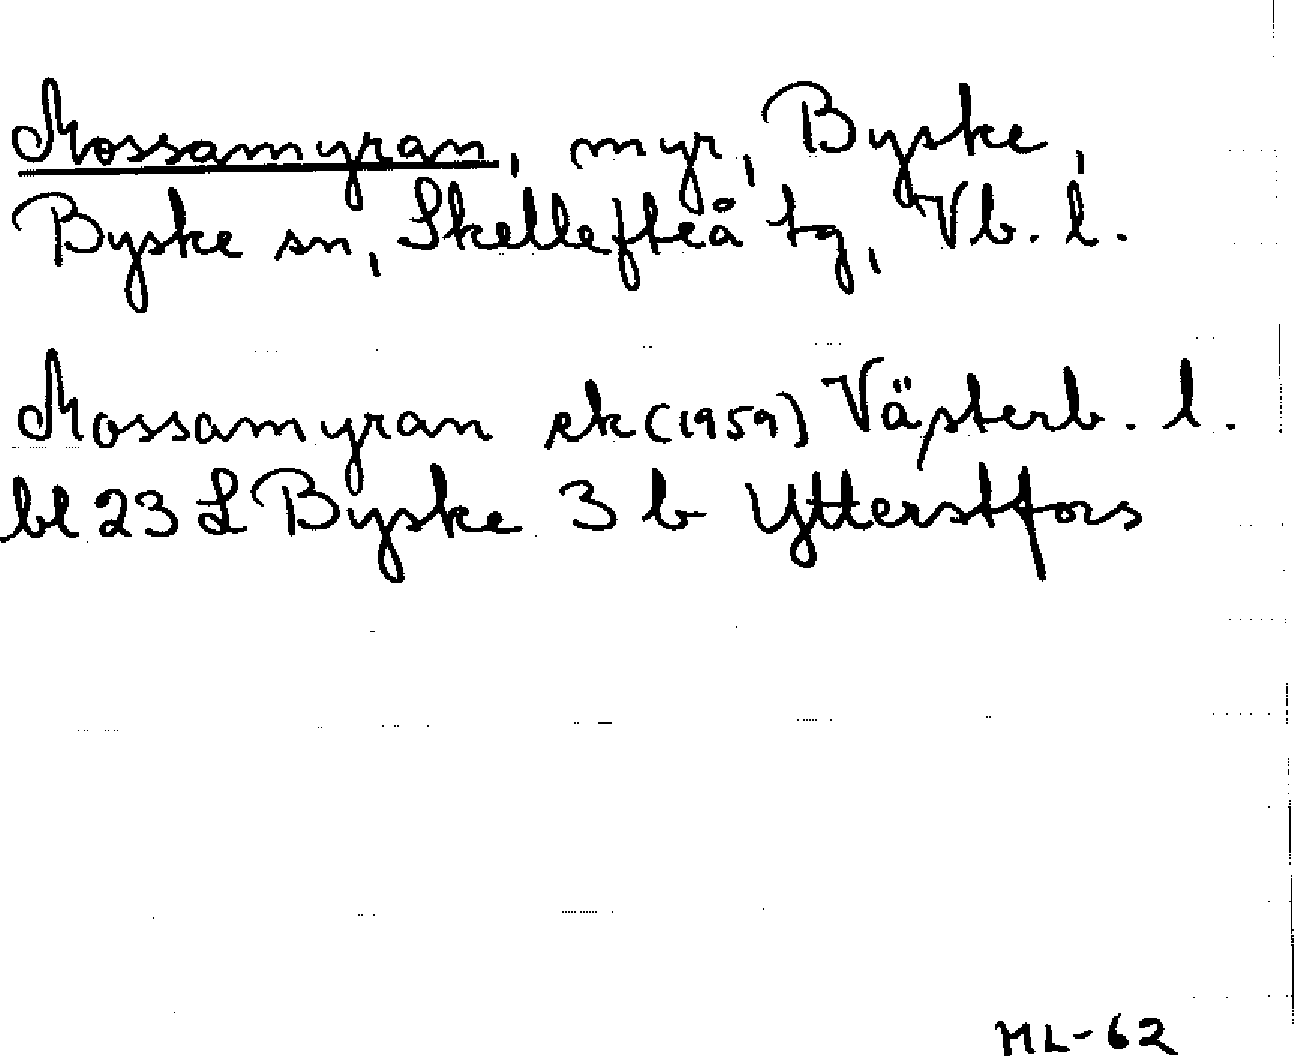 Mossamyran, myr, Byske,
Byske sn, Skellefteå tg, Vb. l.
Mossamyran ek (1959) Västerb. l.
bl 23 L Byske 3 b Ytterstfors
ML-62